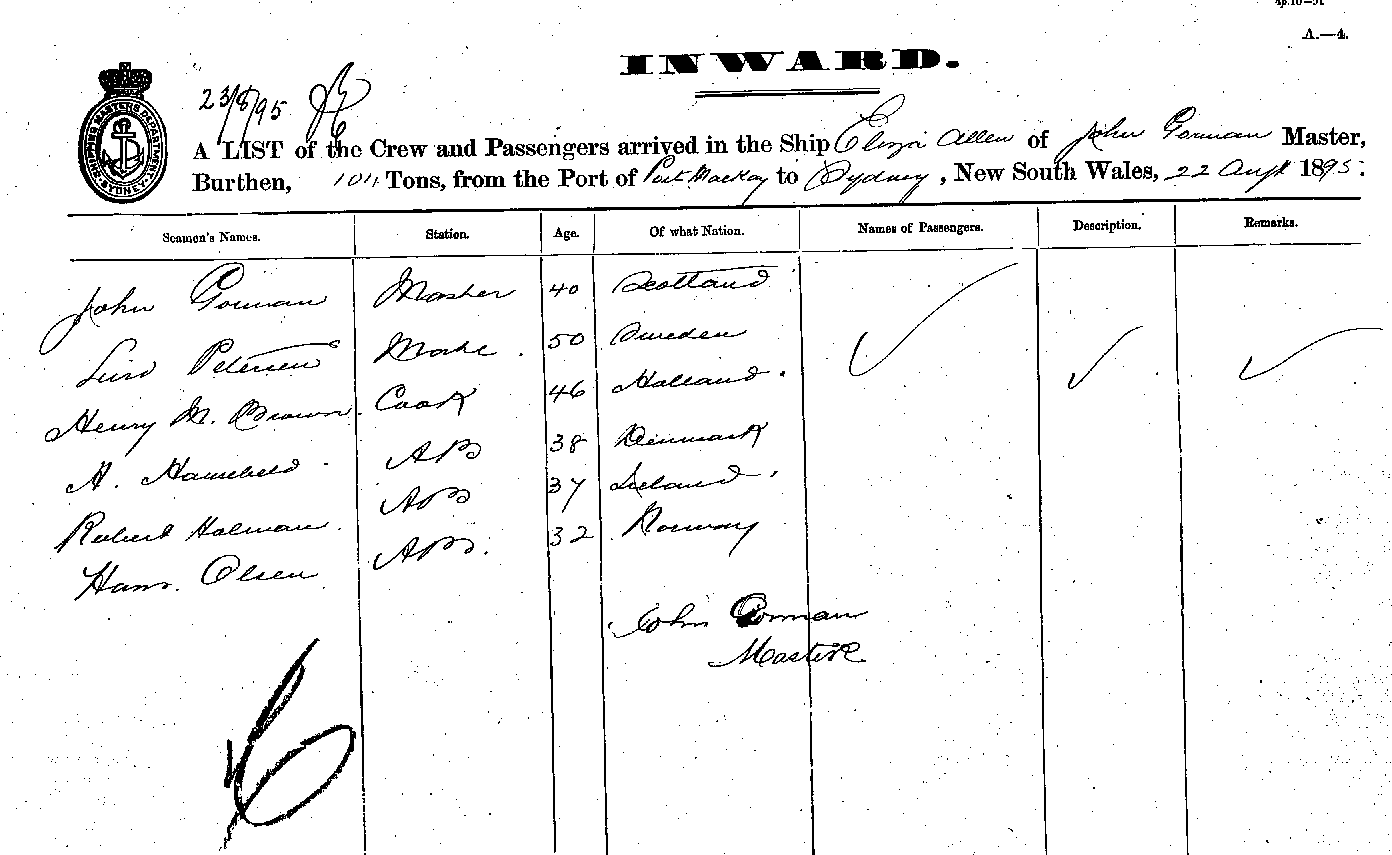 A.—4.
INWARD.
23/8/95
A LIST of the Crew and Passengers arrived in the Ship Eliza Allen of John Gorman Master,
Burthen, 104 Tons, from the Port of Port Mackay to Sydney, New South Wales, 22 Augt 1895.
SHIPPING MASTERS DEPARTMENT SYDNEY
Seamen's Names. Station. Age. Of what Nation. Names of Passengers. Description. Remarks.
John Gorman Master 40 Scotland
Petersen Mate. 50 Sweden
Henry M. Brown. Cook 46 Holland.
A. AB 38 Denmark
Robert Holman. AB 37 Ireland.
Hans. Olsen AB. 32 Norway
John Gorman
Master